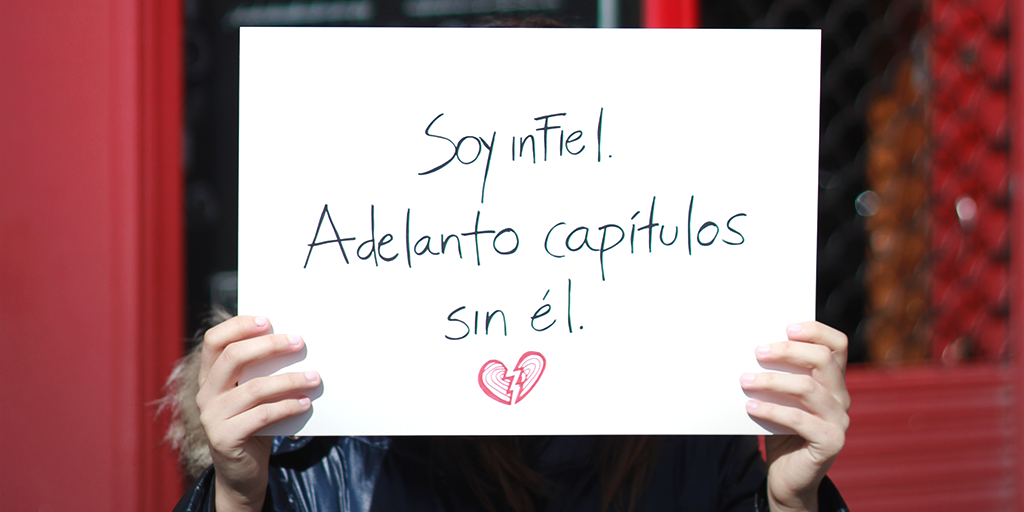 Soy infiel.
Adelanto capítulos
sin él.